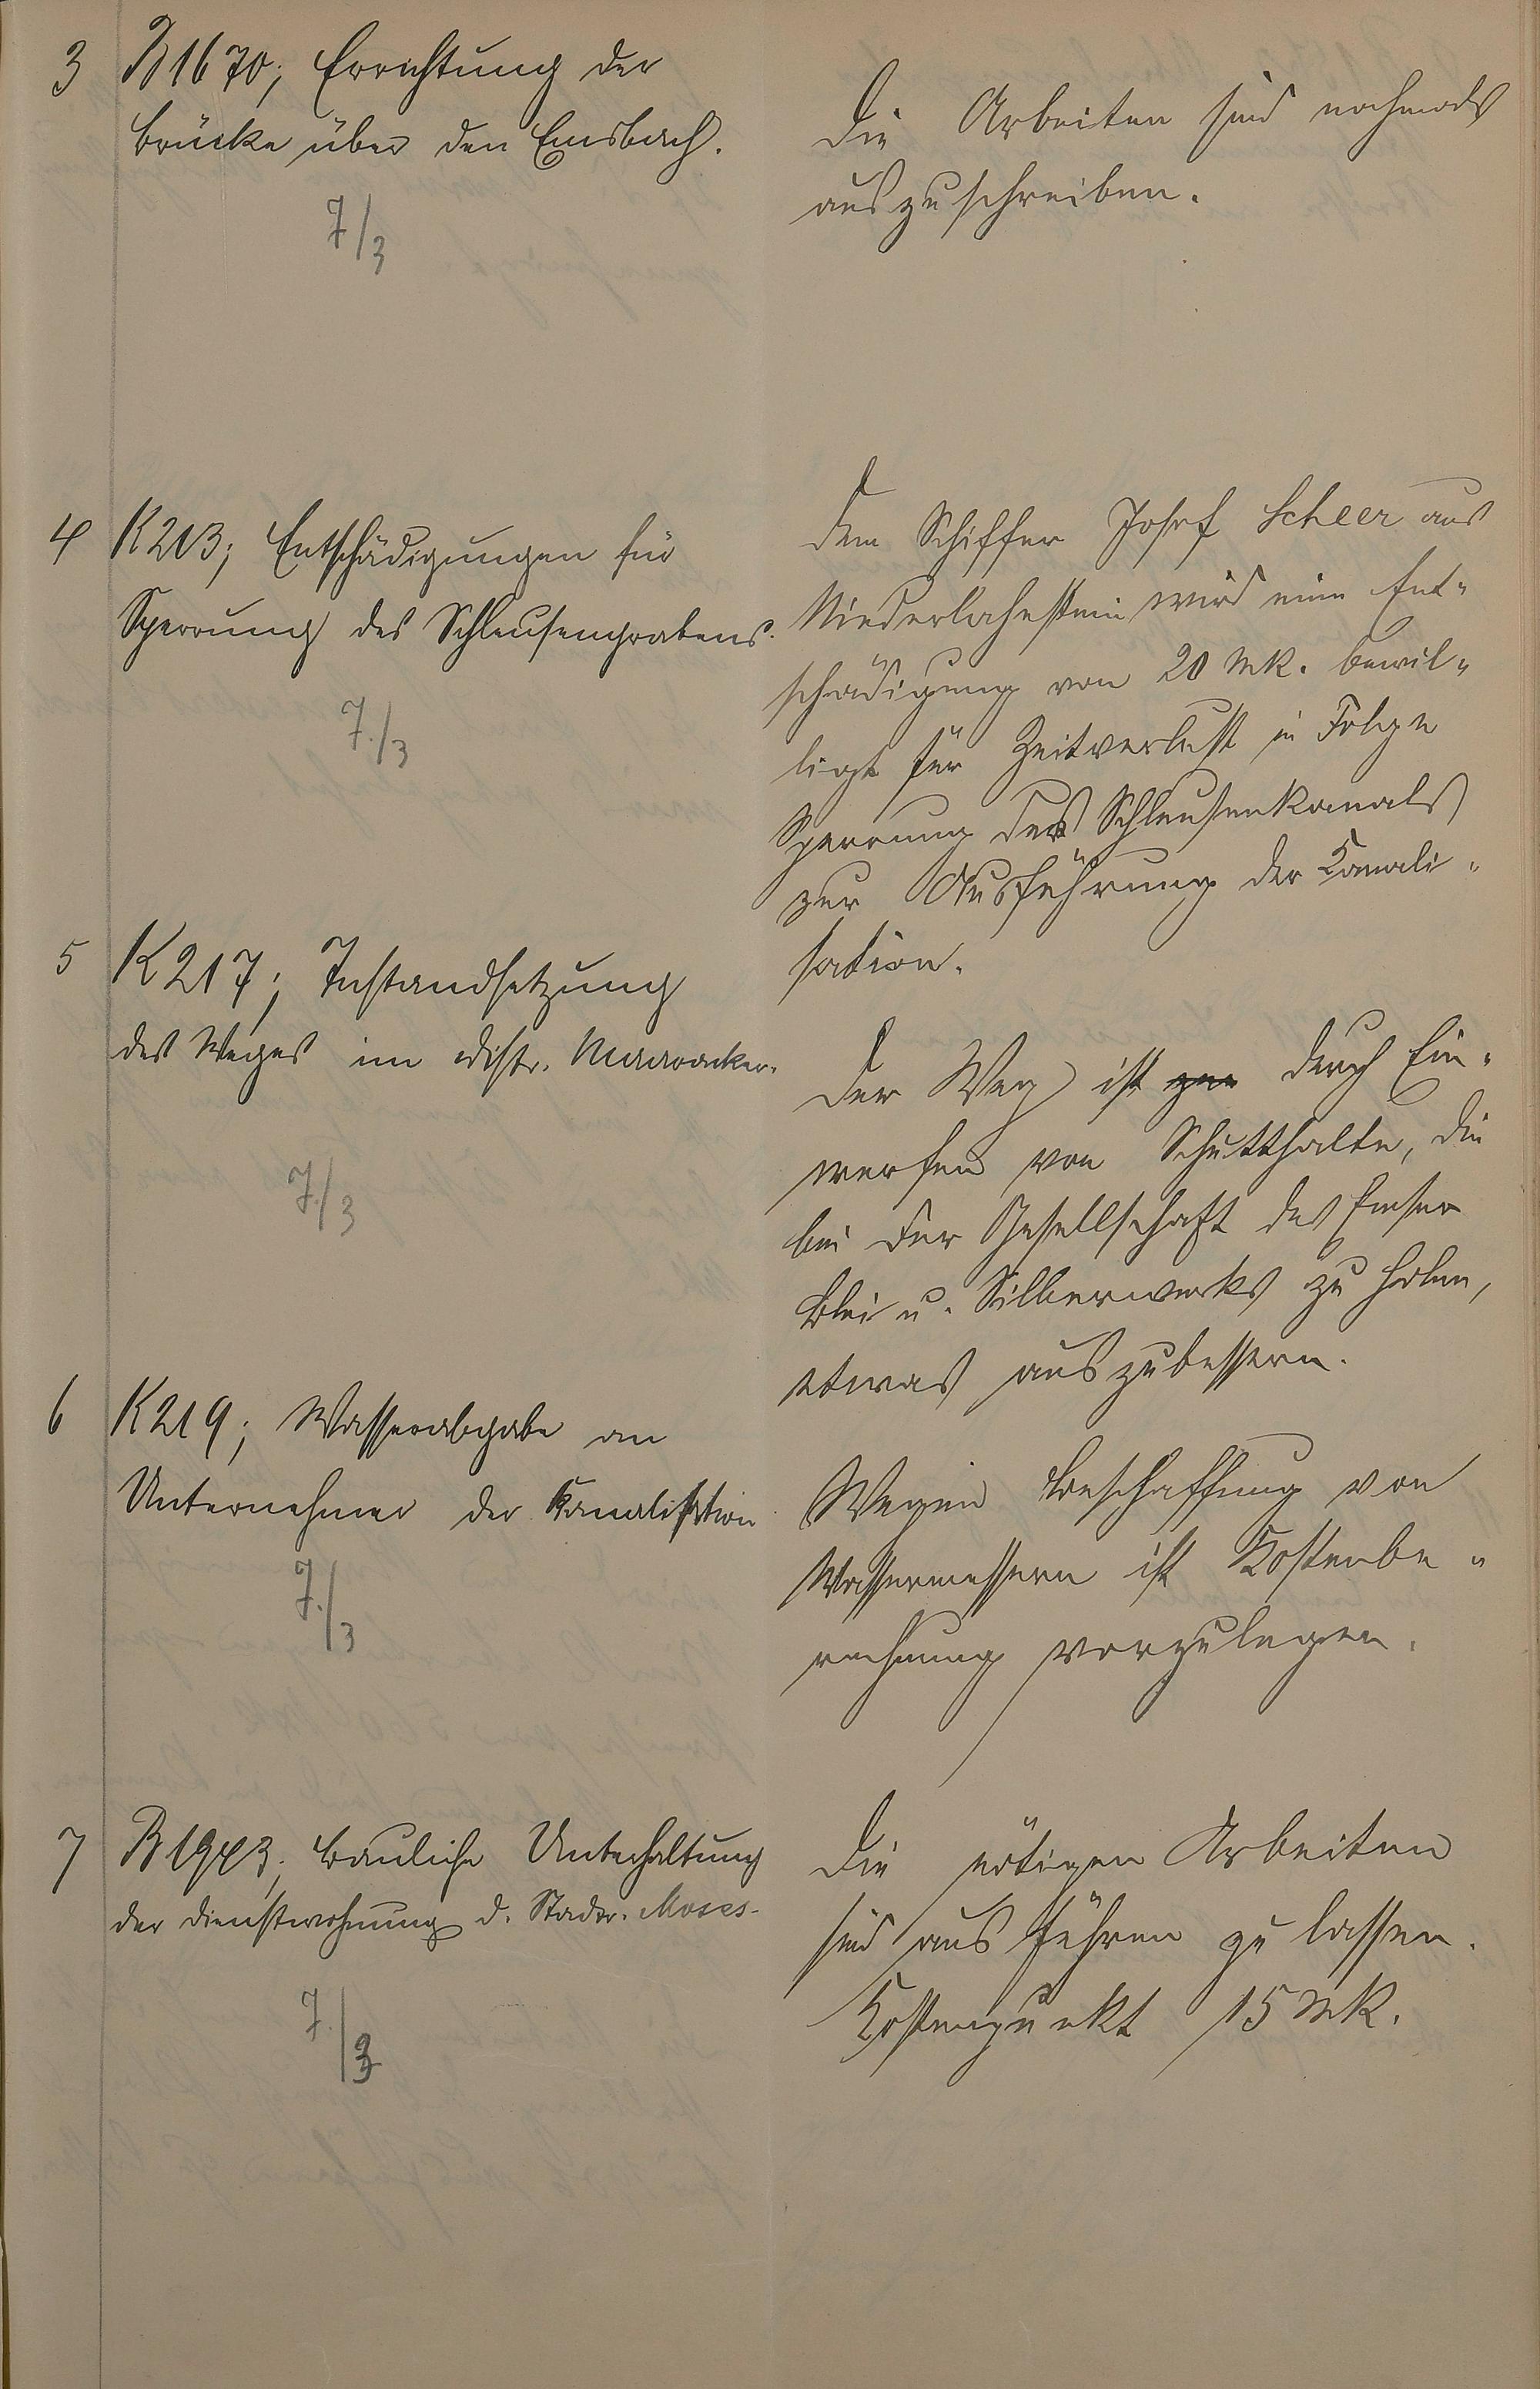 3 B 1670; Errichtung der
Brücke über den Emsbach.
7/3
Die Arbeiten sind nochmals
auszuschreiben.
4 K 213; Entschädigungen für
Sperrung des Schleusengrabens.
7./3
Dem Schiffer Josef Scheer aus
Niederlahnstein wird eine Ent-
schädigung von 20 Mk. bewil-
ligt für Zeitverlust in Folge
Sperrung des Schleusenkanals
zur Ausführung der Kanali-
sation.
5 K 217; Instandsetzung
des Weges im Distr.
7./3
Der Weg ist durch Ein-
werfen von Schutthalte, die
bei der Gesellschaft des Emser
Blei u. Silberwerks zu holen,
etwas auszubessern.
6 K 219; Wasserabgabe an
Unternehmer der Kanalisation
7./3
Wegen Beschaffung von
Wassermessern ist Kostenbe-
rechnung vorzulegen.
7 B 1943; bauliche Unterhaltung
der Dienstwohnung d. Stadtr. Moses.
7./3
Die nötigen Arbeiten
sind ausführen zu lassen.
Kostenpunkt 15 Mk.